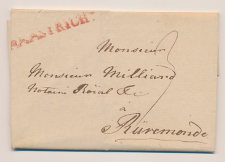 MAASTRICHT
Monsieur
Monsieur Milliard
Notaire Roïal &c
à
Rüremonde